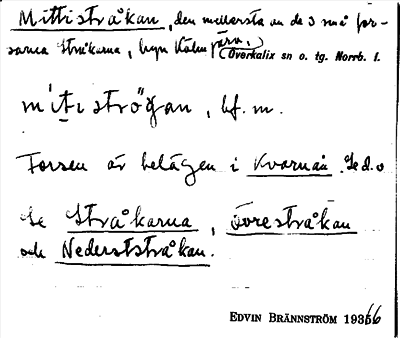 Mittistråkan, den mellersta av de 3 små for-
sarna Stråkarna, byn Kölmjärv.
(Överkalix sn o. tg. Norrb. l.
mi̍ti strö̀gan, bf. m.
Forsen är belägen i Kvarnån. Se d.o
Se Stråkarna, Överstråkan
och Nederststråkan.
EDVIN BRÄNNSTRÖM 1936